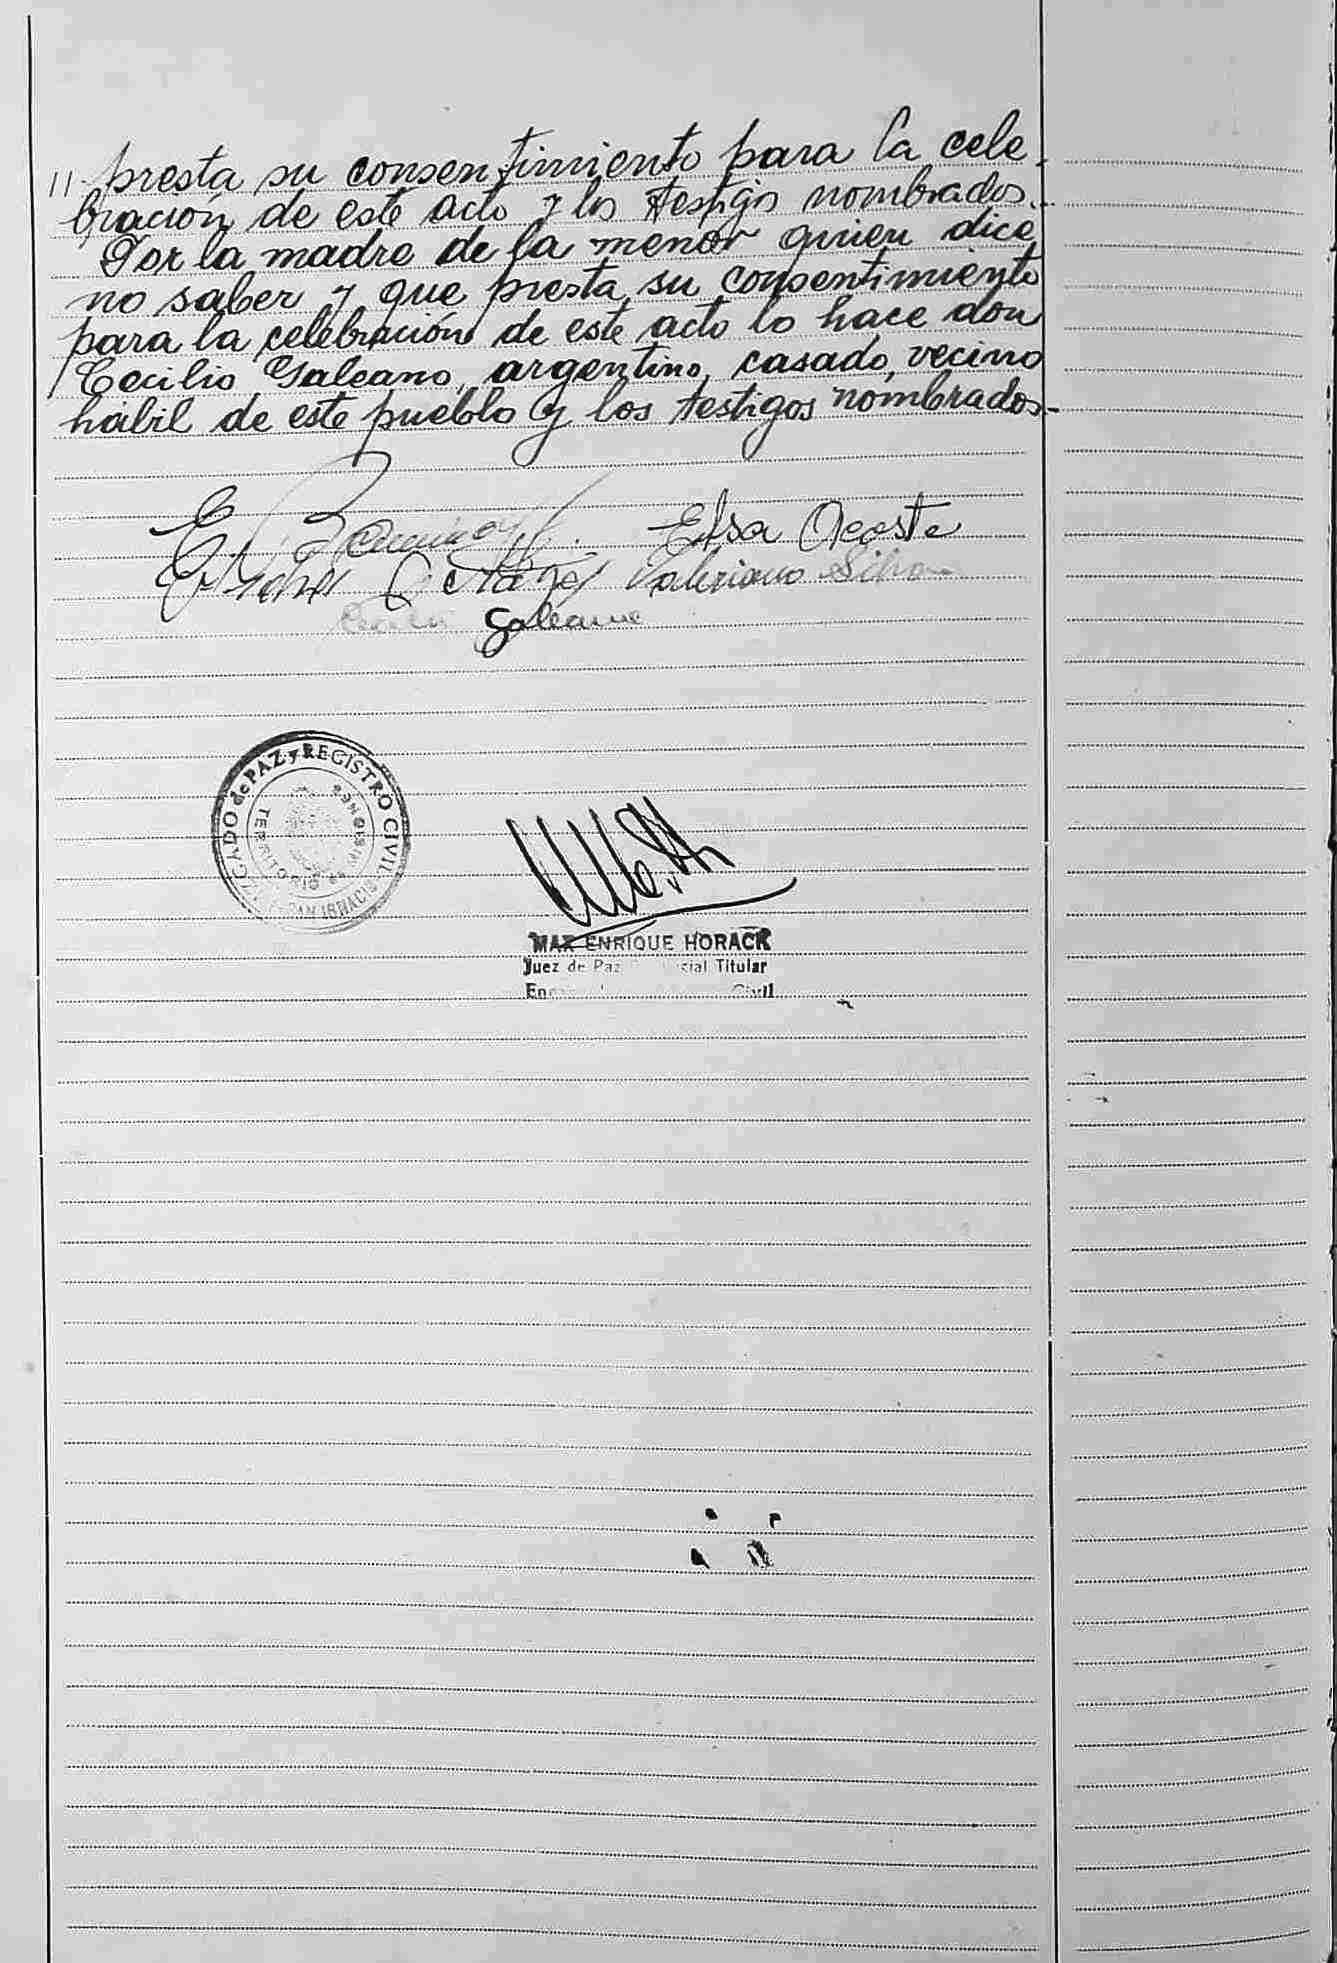 11 presta su consentimiento para la cele-
bración de este acto y los testigos nombrados.-
Por la madre de la menor quien dice
no saber y que presta su consentimiento
para la celebración de este acto lo hace don
Cecilio Galeano, argentino, casado, vecino
hábil de este pueblo y los testigos nombrados.-
E. Elsa Acosta
Valeriano
Galeano
JUZGADO de PAZ y REGISTRO CIVIL
SAN IGNACIO
TERRITORIO DE MISIONES
MAX ENRIQUE HORACK
Juez de Paz Titular
Civil